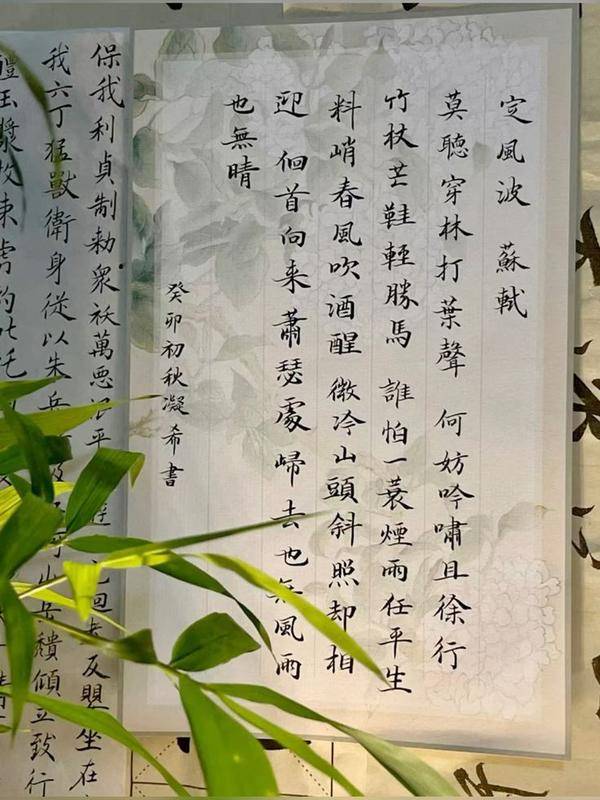 定風波 蘇軾
莫聽穿林打葉聲 何妨吟嘯且徐行
竹杖芒鞋輕勝馬 誰怕一蓑煙雨任平生
料峭春風吹酒醒 微冷山頭斜照却相
迎 徊首向来蕭瑟處歸去也無風雨
也無晴
癸卯初秋凝希書
保我利貞制勑衆祅萬悪泯平 反嬰坐在
我六丁猛獸衛身從以朱兵 山岳穨傾立致行
醴玉漿收束虜豹叱咤